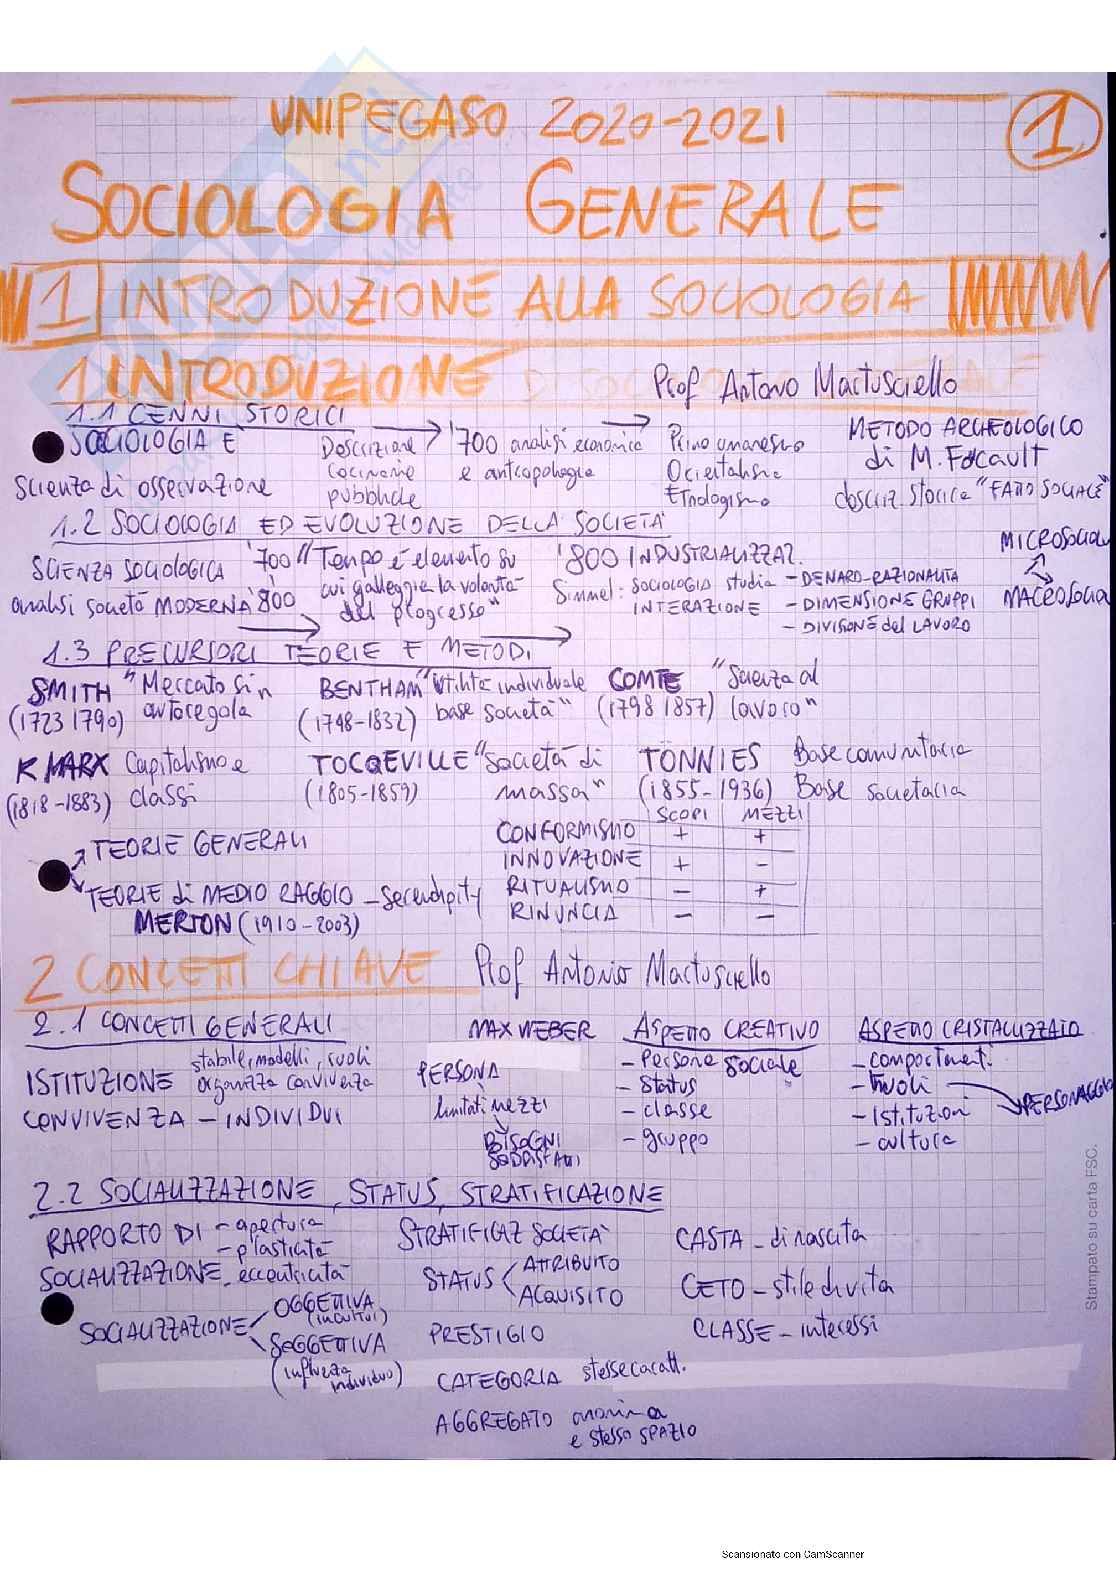 UNIPEGASO 2020-2021
1
SOCIOLOGIA GENERALE
1 INTRODUZIONE ALLA SOCIOLOGIA
1 INTRODUZIONE Prof Antonio Martusciello
1.1 CENNI STORICI
SOCIOLOGIA È
scienza di osservazione
Descrizione
cerimonie
pubbliche
'700 analisi economica
e antropologia
Primo umanesimo
Orientalismo
Etnologismo
METODO ARCHEOLOGICO
di M. Focault
descriz. storica "FATTO SOCIALE"
1.2 SOCIOLOGIA ED EVOLUZIONE DELLA SOCIETÀ
SCIENZA SOCIOLOGICA '700
analisi società MODERNA '800
"Tempo è elemento su
cui galleggia la volontà
del progresso"
'800 INDUSTRIALIZZAZ.
Simmel: SOCIOLOGIA studia
INTERAZIONE
- DENARO-RAZIONALITÀ
- DIMENSIONE GRUPPI
- DIVISIONE del LAVORO
MICROSOCIOLO
MACROSOCIOL
1.3 PRECURSORI TEORIE E METODI
SMITH "Mercato si
(1723 1790) autoregola"
BENTHAM "Utilità individuale
(1748-1832) base società"
COMTE "Scienza al
(1798 1857) lavoro"
K MARX Capitalismo e
(1818-1883) classi
TOCQEVILLE "Società di
(1805-1859) massa"
TONNIES Base comunitaria
(1855-1936) Base societaria
TEORIE GENERALI
TEORIE di MEDIO RAGGIO - Serendipity
MERTON (1910-2003)
SCOPI MEZZI
CONFORMISMO + +
INNOVAZIONE + -
RITUALISMO - +
RINUNCIA - -
2 CONCETTI CHIAVE Prof Antonio Martusciello
2.1 CONCETTI GENERALI
ISTITUZIONE stabile, modelli, ruoli
organizza convivenza
CONVIVENZA - INDIVIDUI
MAX WEBER
PERSONA
limitati MEZZI
BISOGNI
SODDISFATTI
ASPETTO CREATIVO
- Persone sociale
- Status
- classe
- gruppo
ASPETTO CRISTALLIZZATO
- comportamenti
- Ruoli
PERSONAGGIO
- Istituzioni
- cultura
2.2 SOCIALIZZAZIONE, STATUS, STRATIFICAZIONE
RAPPORTO DI - apertura
- plasticità
SOCIALIZZAZIONE - eccentricità
SOCIALIZZAZIONE
OGGETTIVA
(incultur)
SOGGETTIVA
(influenza
individuo)
STRATIFICAZ SOCIETÀ
STATUS
ATTRIBUITO
ACQUISITO
PRESTIGIO
CATEGORIA stesse caratt.
AGGREGATO anonima
e stesso SPAZIO
CASTA - di nascita
CETO - stile di vita
CLASSE - interessi
Stampato su carta FSC.
Scansionato con CamScanner